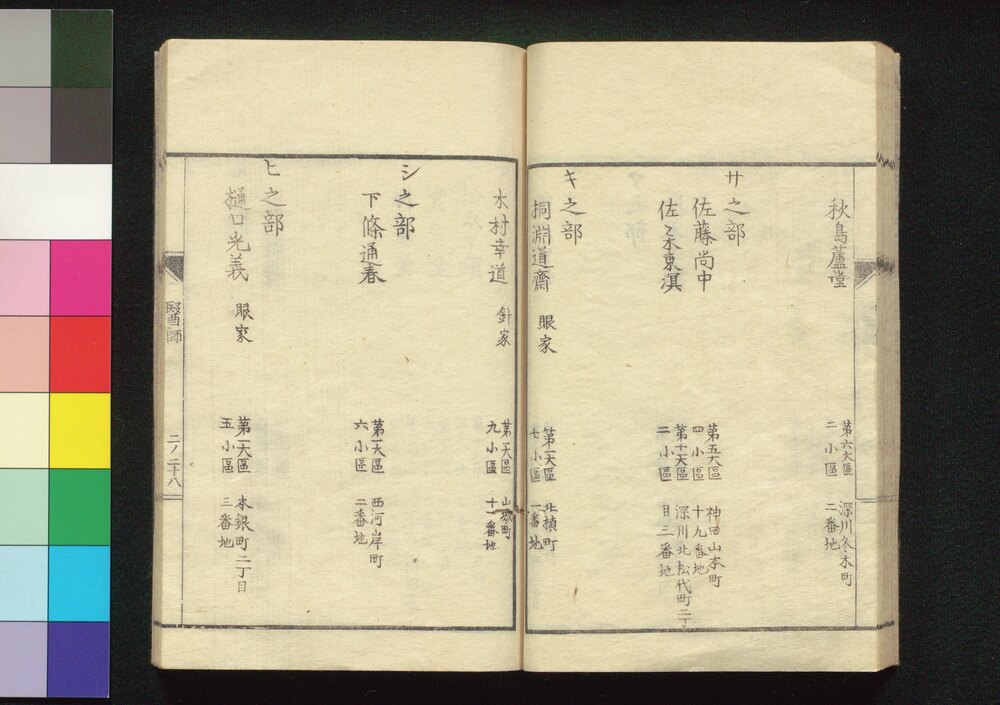 秋島蘆堂
第六大區
二小區
深川冬木町
二番地
サ之部
佐藤尚中
第五大區
四小區
神田山本町
十九番地
佐々木東溟
第十大區
二小區
深川北松代町二丁
目三番地
キ之部
桐淵道齋 眼家
第一大區
七小區
北槇町
一番地
木村幸道 針家
第一大區
九小區
十一番地
シ之部
下條通春
第一大區
六小區
西河岸町
二番地
ヒ之部
樋口光義 眼家
第一大區
五小區
本銀町二丁目
三番地
醫師
二ノ二十八